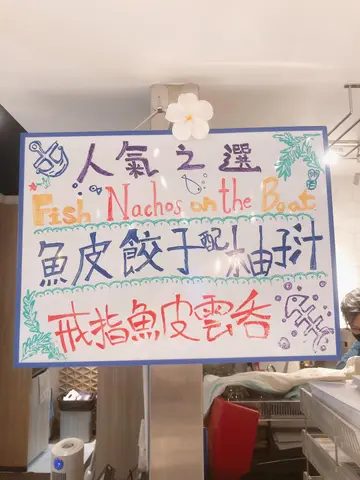 人氣之選
Fish Nachos on the Boat
魚皮餃子配柚子汁
戒指魚皮雲吞